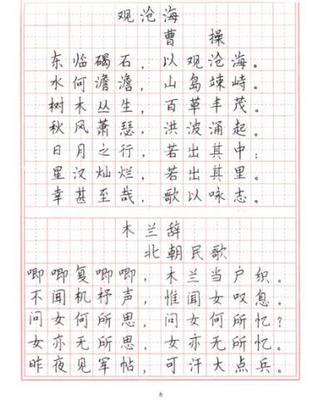 观沧海
曹操
东临碣石，以观沧海。
水何澹澹，山岛竦峙。
树木丛生，百草丰茂。
秋风萧瑟，洪波涌起。
日月之行，若出其中；
星汉灿烂，若出其里。
幸甚至哉，歌以咏志。
木兰辞
北朝民歌
唧唧复唧唧，木兰当户织。
不闻机杼声，惟闻女叹息。
问女何所思，问女何所忆？
女亦无所思，女亦无所忆。
昨夜见军帖，可汗大点兵。
6